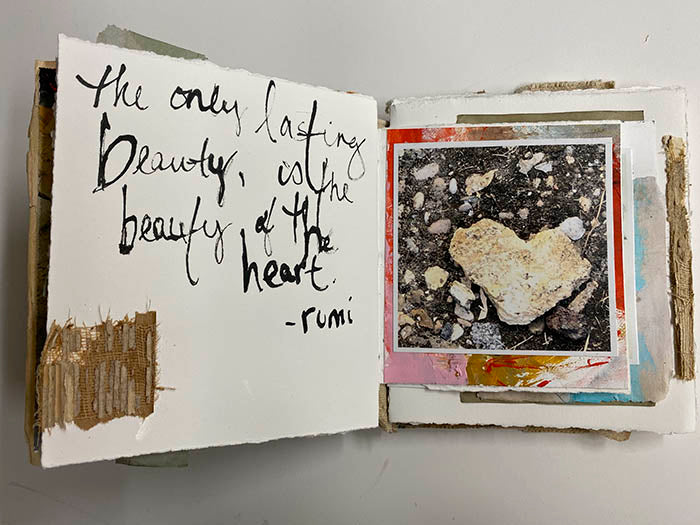 the only lasting
beauty, is the
beauty of the
heart.
-rumi